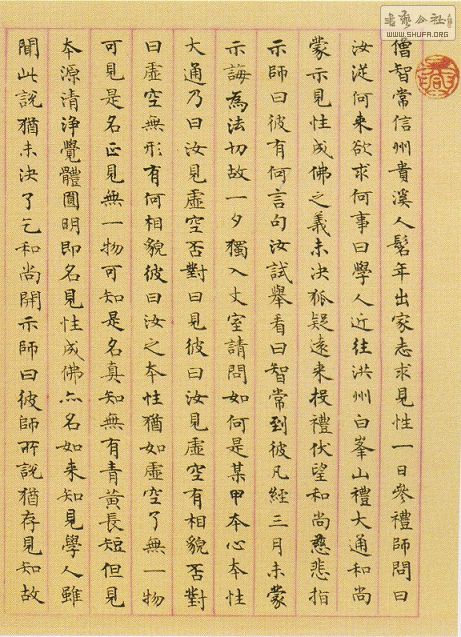 僧智常信州貴溪人髫年出家志求見性一日參禮師問曰
汝従何来欲求何事曰學人近往洪州白峯山禮大通和尚
蒙示見性成佛之義未決狐疑遠来投禮伏望和尚慈悲指
示師曰彼有何言句汝試舉看曰智常到彼凡經三月未蒙
示誨為法切故一夕獨入丈室請問如何是某甲本心本性
大通乃曰汝見虛空否對曰見彼曰汝見虛空有相貌否對
曰虛空無形有何相貌彼曰汝之本性猶如虛空了無一物
可見是名正見無一物可知是名真知無有青黃長短但見
本源清淨覺體圓明即名見性成佛亦名如来知見學人雖
聞此說猶未決了乞和尚開示師曰彼師所說猶存見知故
書藝公社
WWW.SHUFA.ORG